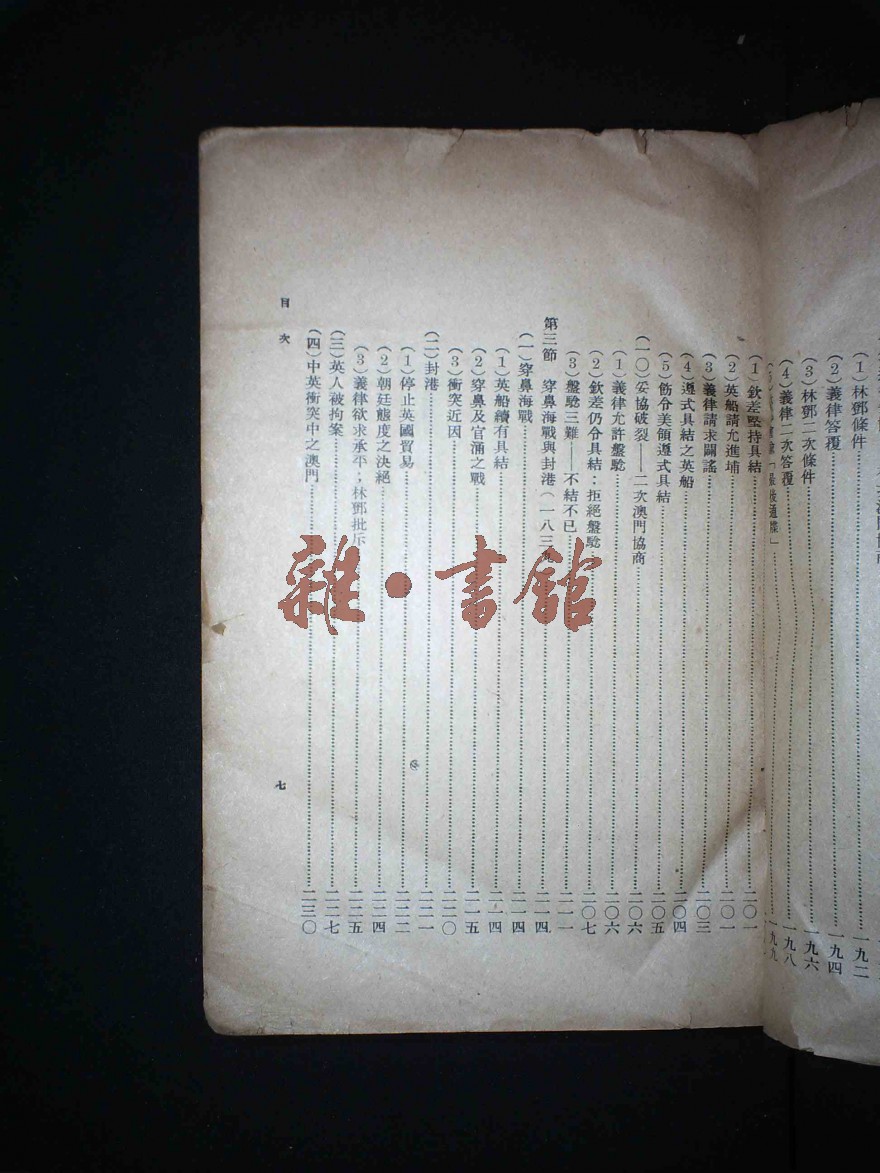 (1)林鄧條件……一九二
(2)義律答覆……一九四
(3)林鄧二次條件……一九六
(4)義律二次答覆……一九八
「最後通牒」……一九九
(1)欽差堅持具結……二〇一
(2)英船請允進埔……二〇一
(3)義律請求闢謠……二〇三
(4)遵式具結之英船……二〇四
(5)飭令美領遵式具結……二〇五
(一〇)妥協破裂——二次澳門協商……二〇六
(1)義律允許盤騐……二〇六
(2)欽差仍令具結:拒絕盤騐……二〇七
(3)盤騐三難——不結不已……二一一
第三節 穿鼻海戰與封港(一八三……二一四
(一)穿鼻海戰……二一四
(1)英船續有具結……二一四
(2)穿鼻及官涌之戰……二一五
(3)衝突近因……二二〇
(二)封港……二二一
(1)停止英國貿易……二二二
(2)朝廷態度之決絕……二二四
(3)義律欲求承平;林鄧批斥……二二五
(三)英人被拘案……二二七
(四)中英衝突中之澳門……二三〇
目次
七
雜·書館